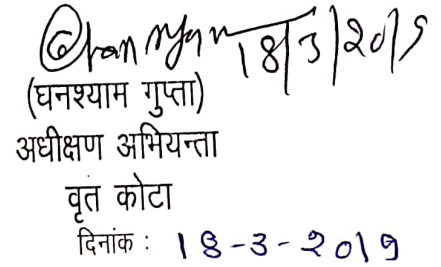 18/3/2019
(घनश्याम गुप्ता)
अधीक्षण अभियन्ता
वृत कोटा
दिनांक : 18-3-2019